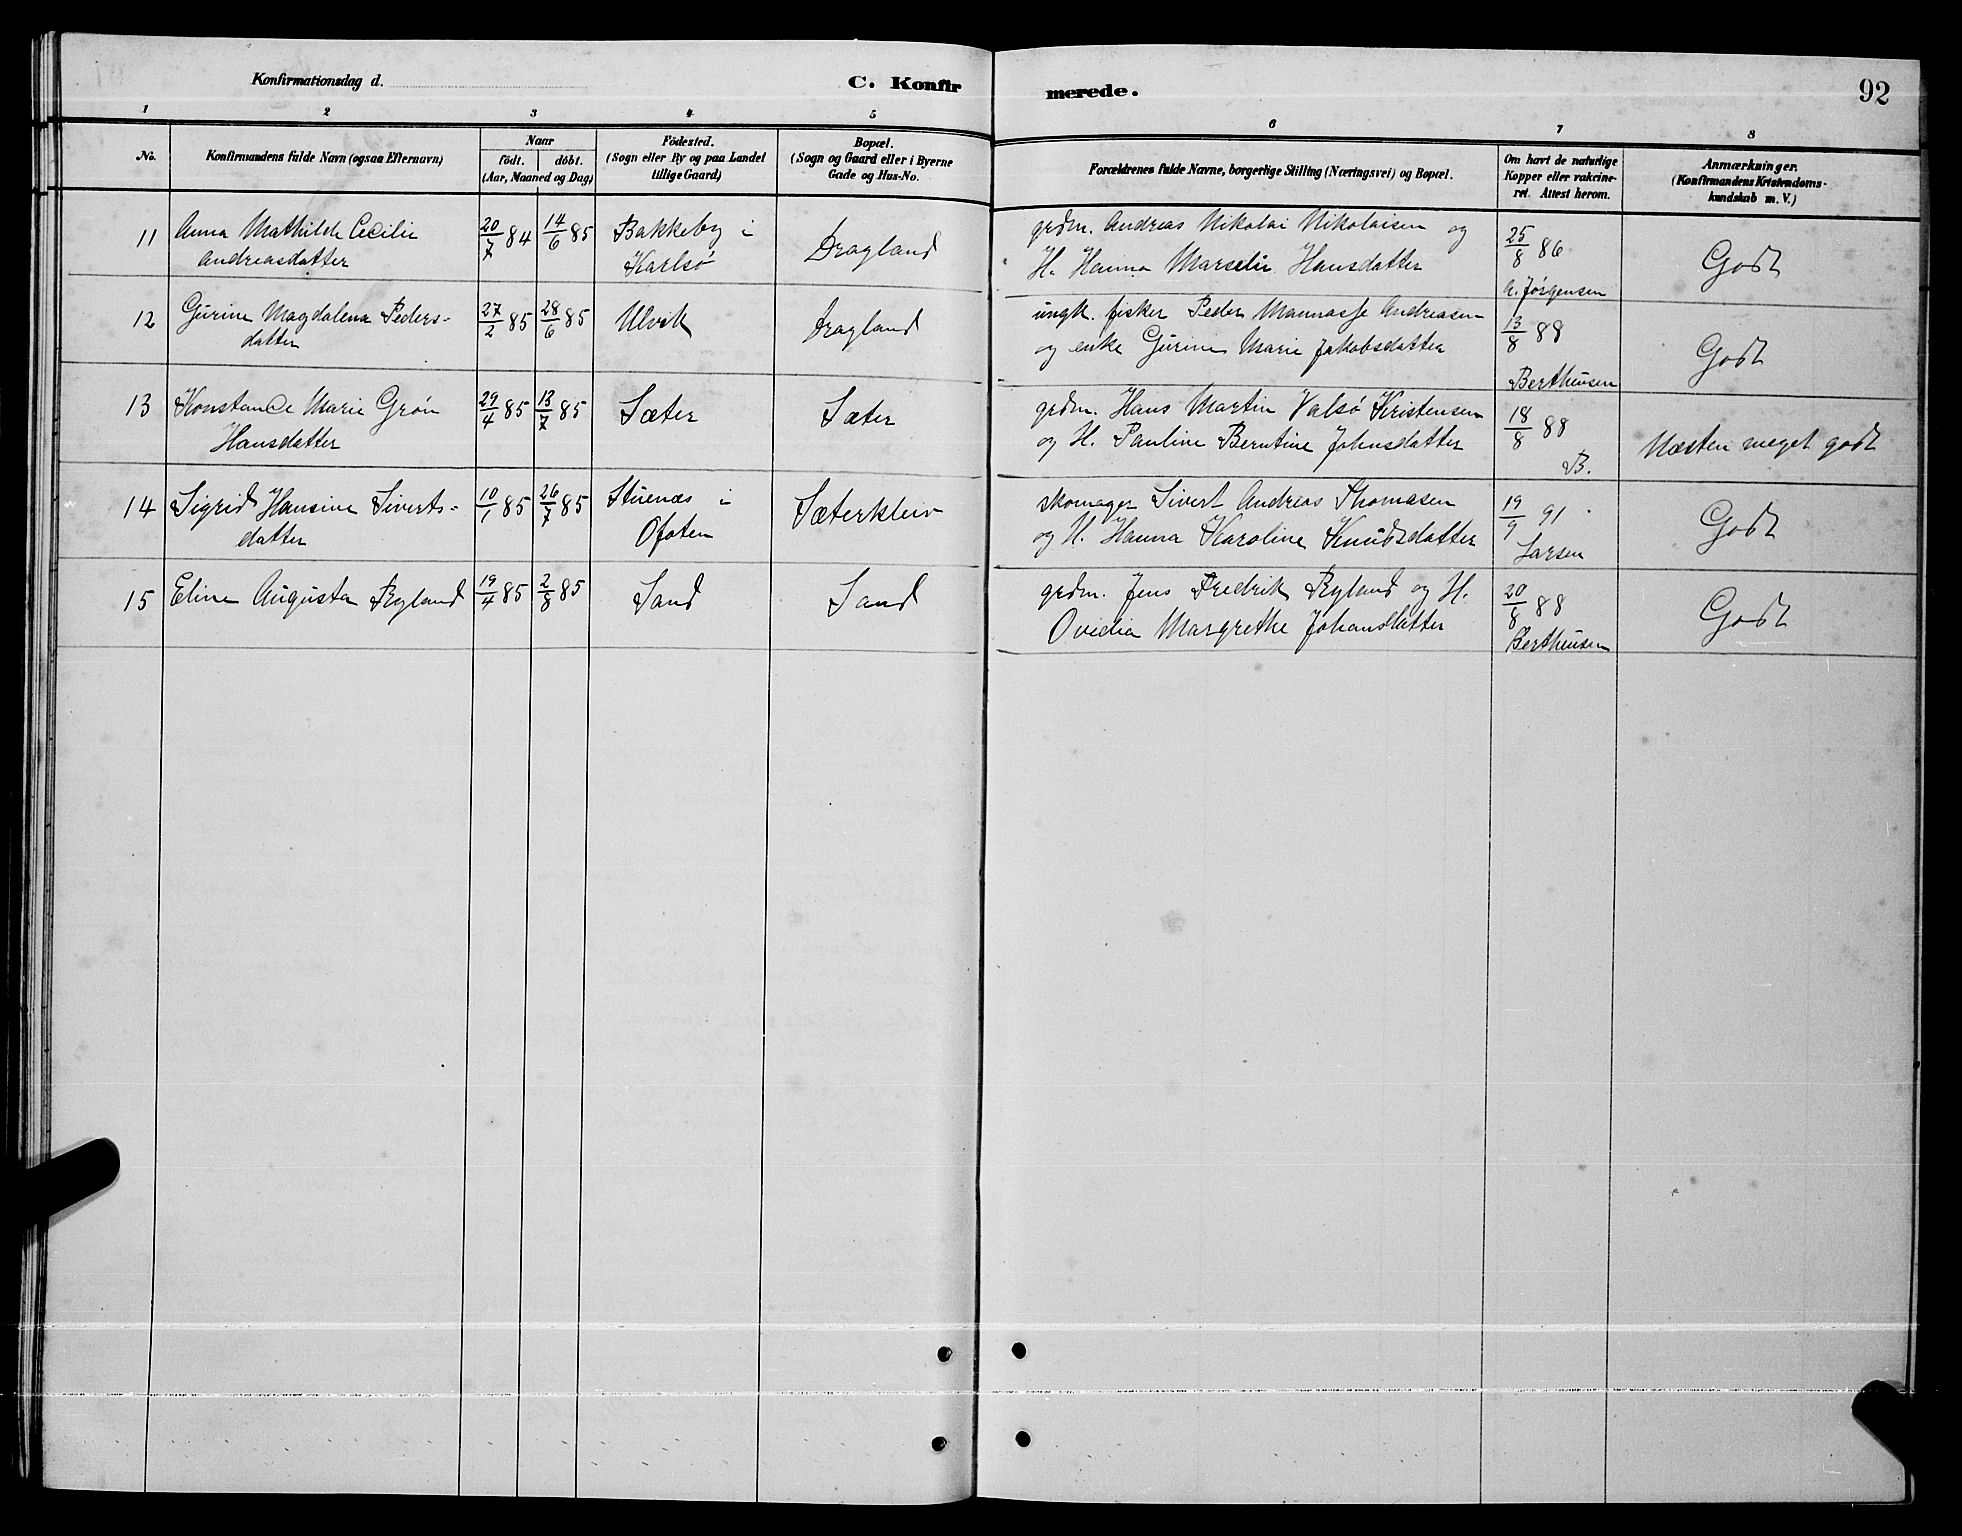 Konfirmationsdag d.
C. Konfirmerede.
92
1 2 3 4 5 6 7 8
No.
Konfirmandens fulde Navn (ogsaa Efternavn)
Naar
födt. döbt.
(Aar, Maaned og Dag)
Födested.
(Sogn eller By og paa Landet
tillige Gaard)
Bopæl.
(Sogn og Gaard eller i Byerne
Gade og Hus-No.
Forældrenes fulde Navne, borgerlige Stilling (Næringsvei) og Bopæl.
Om havt de naturlige
Kopper eller vakcine-
ret. Attest herom.
Anmærkninger.
(Konfirmandens Kristendoms-
kundskab m. V.)
11 Anna Mathilde Cecilie
Andreasdatter
20/7 84 14/6 85
Bakkeby i
Karlsö
Dragland
grdm. Andreas Nikolai Nikolaisen og
H. Hanna Marselie Hansdatter
25/8 86
A. Jørgensen
Godt
12 Gurine Magdalena Peders-
datter
27/2 85 28/6 85
Ulvik
Dragland
ungk. fisker Peder Mannasse Andreasen
og enke Gurine Marie Jakobsdatter
13/8 88
Bertheusen
Godt
13 Konstance Marie Grön
Hansdatter
29/4 85 13/7 85
Sæter
Sæter
grdm. Hans Martin Valsö Kristensen
og H. Pauline Berntine Johnsdatter
18/8 88
B.
Næsten meget godt
14 Sigrid Hansine Siverts-
datter
10/1 85 26/7 85
Stuenæs i
Ofoten
Sæterkleiv
skomager Sivert Andreas Thomasen
og H. Hanna Karoline Knudsdatter
19/9 91
Larsen
Godt
15 Eline Augusta Ryland
19/4 85 2/8 85
Sand
Sand
grdm. Jens Fredrik Ryland og H.
Ovidia Margrethe Johansdatter
20/8 88
Bertheusen
Godt